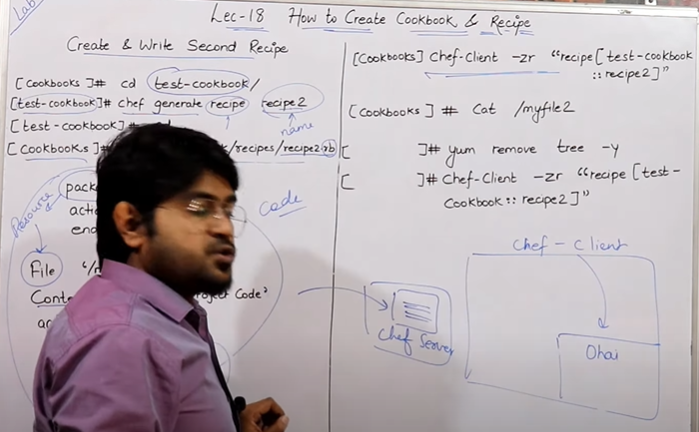 Lab
Lec-18 How to Create Cookbook & Recipe
Create & Write Second Recipe
[Cookbooks]# cd test-cookbook/
[test-cookbook]# chef generate recipe recipe2
name
[test-cookbook]# cd
[Cookbooks]# /recipes/recipe2.rb
Resource
pack
code
actio
end
File "/m
Conte roject Code'
ac
[Cookbooks] Chef-Client -zr "recipe[test-cookbook
::recipe2]"
[Cookbooks] # Cat /myfile2
[ ]# yum remove tree -y
[ ]# Chef-Client -zr "recipe [test-
Cookbook::recipe2]"
Chef-Client
Chef Server
Ohai